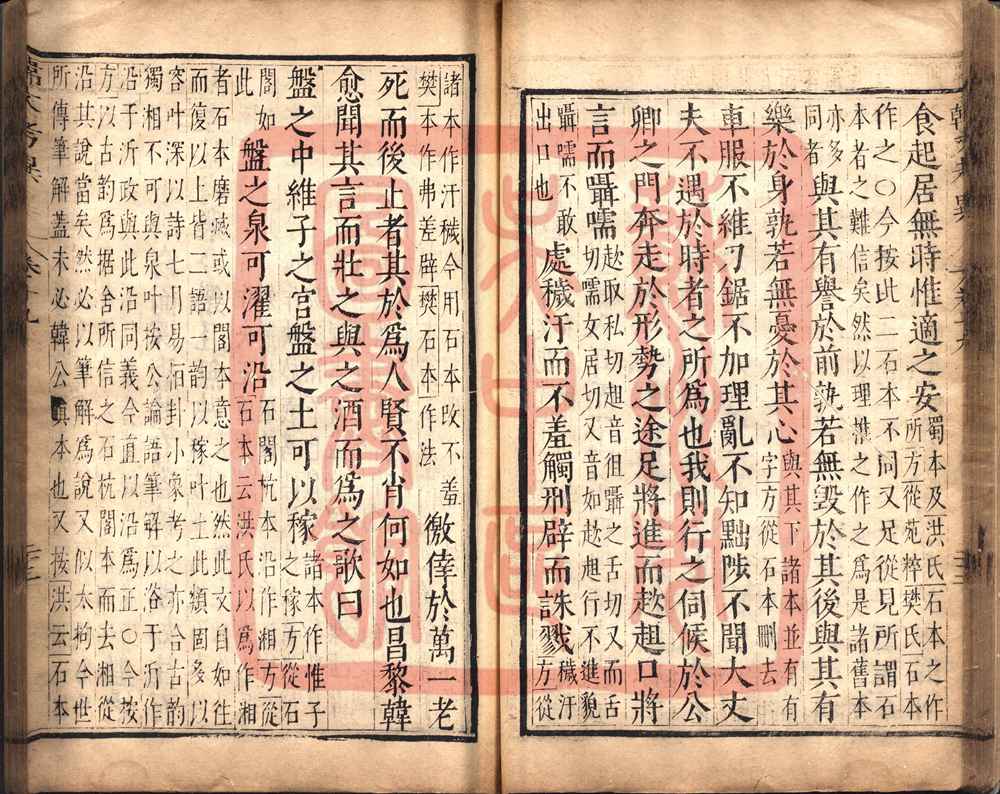 食起居無時惟適之安蜀本及洪氏石本之作
所方從苑粹樊氏石本
作之〇今按此二石本不同又足從見所謂石
本者之難信矣然以理揆之作之為是諸舊本
亦多
同者與其有譽於前孰若無毀於其後與其有
樂於身孰若無憂於其心與其下諸本並有有
字方從石本刪去
車服不維刀鋸不加理亂不知黜陟不聞大丈
夫不遇於時者之所為也我則行之伺候於公
卿之門奔走於形勢之途足將進而趑趄口將
言而囁嚅趑取私切趄音徂囁之舌切又而舌
切嚅女居切又音如趑趄行不進貌
囁嚅不敢
出口也處穢汙而不羞觸刑辟而誅戮穢汙
方從
諸本作汙穢今用石本改不羞
樊本作弗差辟樊石本作法徼倖於萬一老
死而後止者其於為人賢不肖何如也昌黎韓
愈聞其言而壯之與之酒而為之歌曰
盤之中維子之宮盤之土可以稼諸本作惟子
之稼方從石
閣如
此盤之泉可濯可沿石閣杭本沿作湘方從
石本云洪氏以為作湘
者石本磨滅或以閣本意之也然此文自如往
而復以上皆二語一韵以稼叶土此類固多以
容叶深以詩七月易恒卦小象考之亦合古韵
獨相不可與泉叶按公論語筆解以浴于沂作
沿于沂政與此沿同義今直以沿為正〇今按
方以古韵為据舍所信之石杭閣本而去湘從
沿其說當矣然必以筆解為說又似太拘今世
所傳筆解蓋未必韓公真本也又按洪云石本